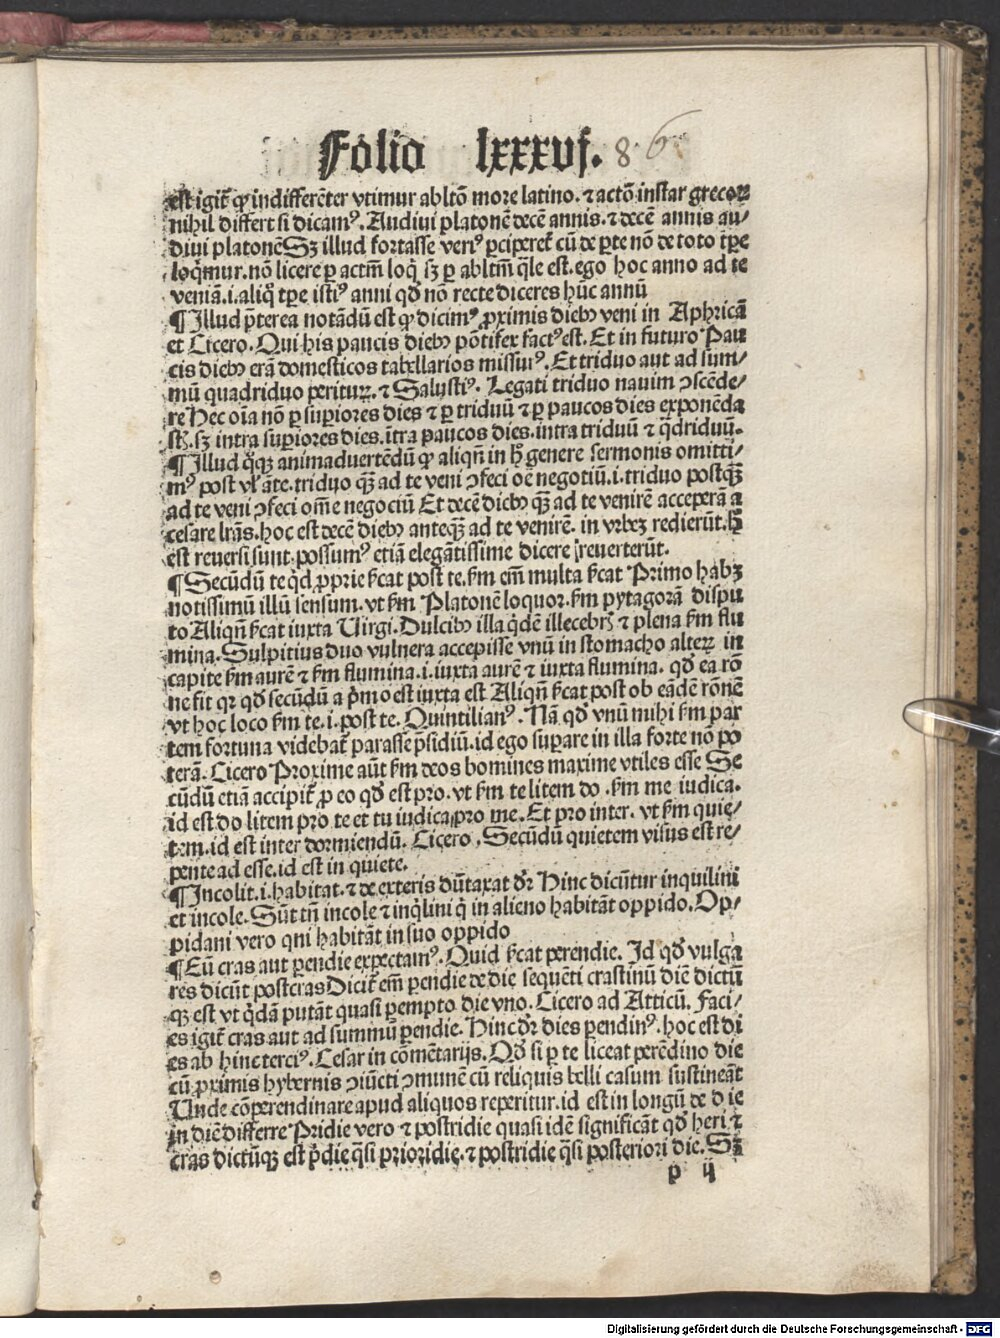 Folio lxxxvj. 86
est igit̃ ꝙ indifferẽter vtimur abltõ more latino. ⁊ actõ instar grecoꝝ
nihil differt si dicamꝰ. Audiui platonẽ decẽ annis. ⁊ decẽ annis au/
diui platonẽ Sꝫ illud fortasse veriꝰ ꝑciperet̃ cũ de ꝑte nõ de toto tꝑe
loq̃mur. nõ licere ꝑ actm̃ loq̃ sꝫ ꝑ abltm̃ q̃le est. ego hoc anno ad te
veniã. i. aliq̃ tꝑe istiꝰ anni qđ nõ recte diceres hũc annũ
¶ Illud p̃terea notãdũ est ꝙ dicimꝰ ꝓximis diebꝰ veni in Aphricã
et Cicero. Qui his paucis diebꝰ põtifex factꝰ est. Et in futuro Pau
cis diebꝰ erã domesticos tabellarios missurꝰ. Et triduo aut ad sum/
mũ quadriduo perituꝝ. ⁊ Salustiꝰ. Legati triduo nauim ꝯscẽde/
re Hec oĩa nõ ꝑ suꝑiores dies ⁊ ꝑ triduũ ⁊ ꝑ paucos dies exponẽda
sũt. sꝫ intra suꝑiores dies. ĩtra paucos dies. intra triduũ ⁊ q̃driduũ.
¶ Illud q̃ꝫ animaduertẽdũ ꝙ aliqñ in h̃ genere sermonis omitti/
mꝰ post vl̃ ãte. triduo q̃ꝫ ad te veni ꝯfeci oẽ negotiũ. i. triduo postq̃ꝫ
ad te veni ꝯfeci om̃e negociũ Et decẽ diebꝰ q̃ꝫ ad te venirẽ acceperã a
cesare lr̃as. hoc est decẽ diebꝰ anteq̃ꝫ ad te venirẽ. in vrbeꝫ redierũt. h̃
est reuersi sunt. possumꝰ etiã elegãtissime dicere reuerterũt.
¶ Secũdũ te qđ ꝓprie s̃cat post te. sm̃ em̃ multa s̃cat Primo habꝫ
notissimũ illũ sensum. vt sm̃ Platonẽ loquor. sm̃ pytagorã dispu
to Aliqñ s̃cat iuxta Uirgi. Dulcibꝰ illa q̃dẽ illecebris ⁊ plena sm̃ flu
mina. Sulpitius duo vulnera accepisse vnũ in stomacho alteꝝ in
capite sm̃ aurẽ ⁊ sm̃ flumina. i. iuxta aurẽ ⁊ iuxta flumina. qđ ea rõ
ne fit qr qđ secũdũ a p̃mo est iuxta est Aliqñ s̃cat post ob eãdẽ rõnẽ
vt hoc loco sm̃ te. i. post te. Quintilianꝰ. Nã qđ vnũ mihi sm̃ par
tem fortuna videbat̃ parasse p̃sidiũ. id ego suꝑare in illa forte nõ po
terã. Cicero Proxime aũt sm̃ deos homines maxime vtiles esse Se
cũdũ etiã accipit̃ ꝓ eo qđ est pro. vt sm̃ te litem do. sm̃ me iudica.
id est do litem pro te et tu iudica pro me. Et pro inter. vt sm̃ quie/
tem. id est inter dormiendũ. Cicero. Secũdũ quietem visus est re/
pente ad esse. id est in quiete.
¶ Incolit. i. habitat. ⁊ de exteris dũtaxat dr̃ Hinc dicũtur inquilini
et incole. Sũt tñ incole ⁊ inq̃lini q̃ in alieno habitãt oppido. Op/
pidani vero qui habitãt in suo oppido
¶ Eũ cras aut ꝑendie expectamꝰ. Quid s̃cat perendie. Id qđ vulga
res dicũt postcras Dicit̃ em̃ ꝑendie de die sequẽti crastinũ diẽ dictũ
qꝫ est vt q̃dã putãt quasi ꝑempto die vno. Cicero ad Atticũ. Faci/
es igit̃ cras aut ad summũ ꝑendie. Hinc dr̃ dies ꝑendinꝰ. hoc est di
es ab hinc terciꝰ. Cesar in cõmẽtarijs. Qđ si ꝑ te liceat perẽdino die
cũ ꝓximis hybernis ꝯiũcti ꝯmunẽ cũ reliquis belli casum sustineãt
Unde cõperendinare apud aliquos reperitur. id est in longũ de die
in diẽ differre Pridie vero ⁊ postridie quasi idẽ significãt qđ heri ⁊
cras dictũqꝫ est p̃die q̃si priori die. ⁊ postridie q̃si posteriori die. Sꝫ
p ij
Digitalisierung gefördert durch die Deutsche Forschungsgemeinschaft - DFG